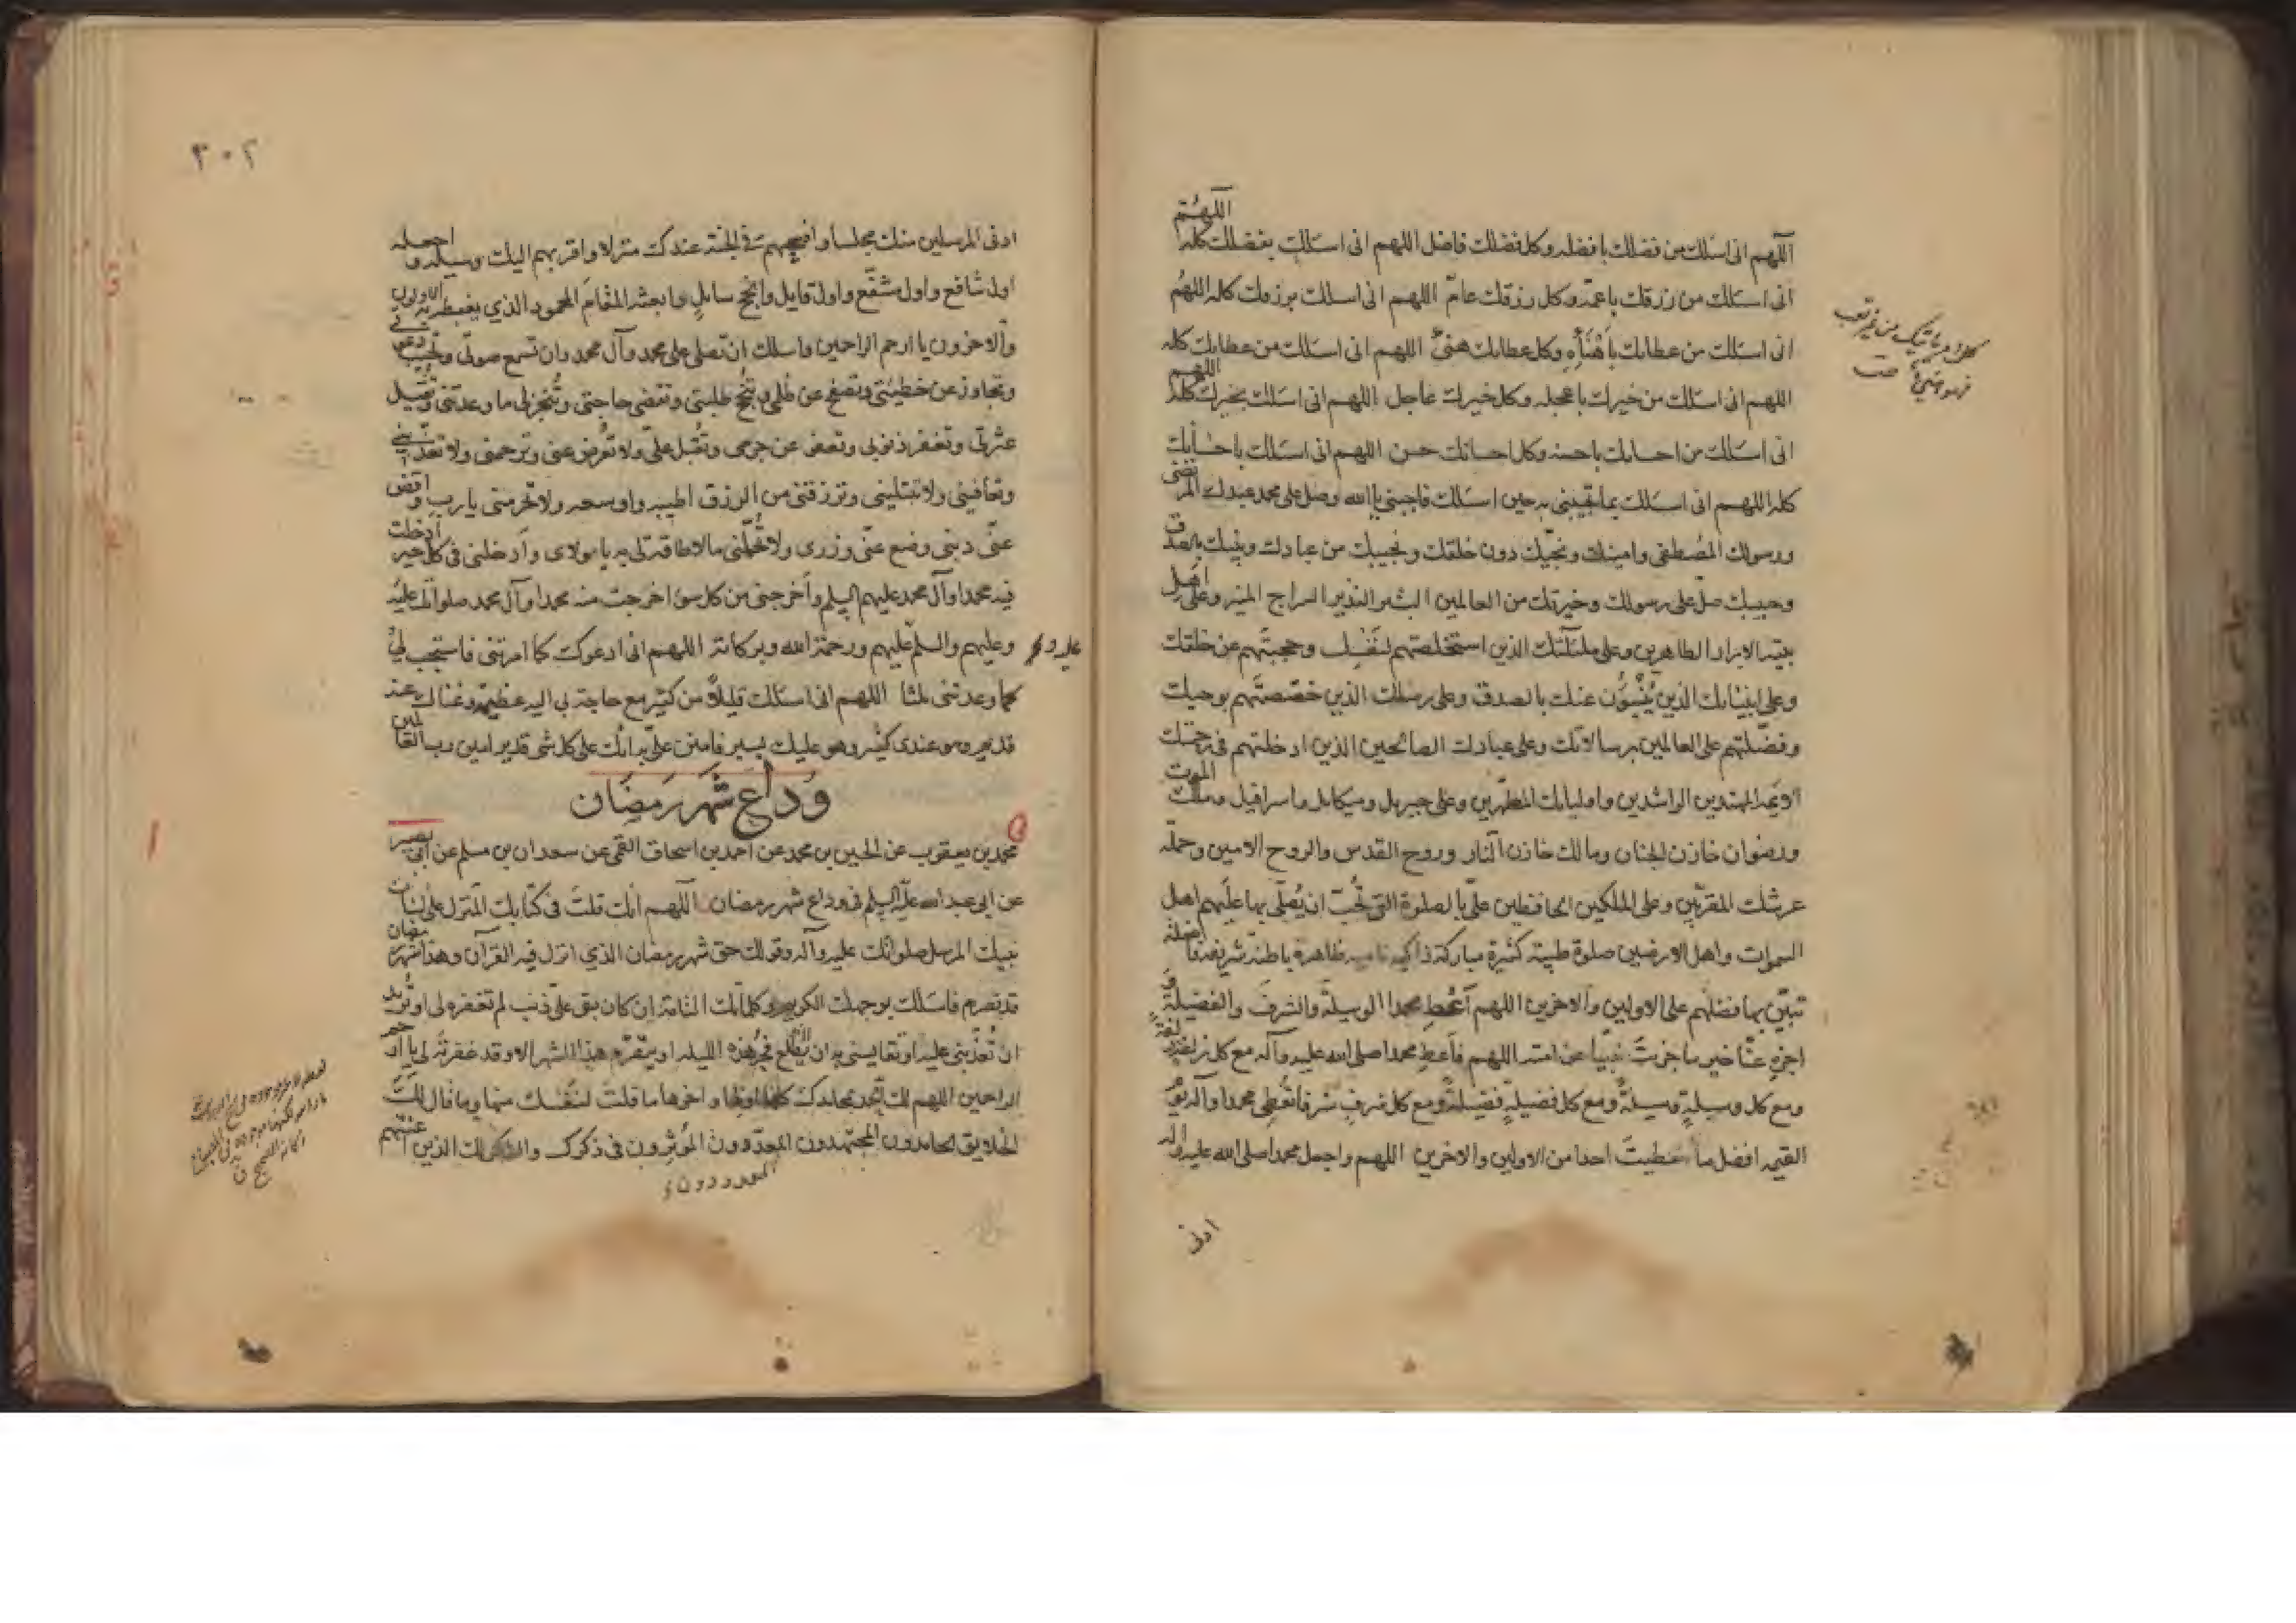 اللهم
اللهم انى اسئلك من فضلك بافضله وكل فضلك فاضل اللهم انى اسئلك بفضلك كله
انى اسئلك من رزقك باعمّه وكل رزقك عامّ اللهم انى اسئلك برزقك كله اللهم
انى اسئلك من عطائك باهْنَأِهِ وكل عطائك هنىّ اللهم انى اسئلك من عطائك كله
اللهم انى اسئلك من خيرك باعجله وكل خيرك عاجل اللهم انى اسئلك بخيرك كله اللهم
انى اسئلك من احسانك باحسنه وكل احسانك حسن اللهم انى اسئلك باحسانك
كله اللهم انى اسئلك بما تجيبنى به حين اسئلك فاجبنى يا الله وصل على محمد عبدك المرتضى
ورسولك المصطفى وامينك ونجيّك دون خلقك ونجيبك من عبادك ونبيك بالصدق
وحبيبك صلّ على رسولك وخيرتك من العالمين البشير النذير السراج المنير وعلى اهل
بيته الابرار الطاهرين وعلى ملئكتك الذين استخلصتهم لنفسك وحجبتهم عن خلقك
وعلى انبيائك الذين يُنْبِئُون عنك بالصدق وعلى رسلك الذين خصّصتهم بوحيك
وفضّلتهم على العالمين برسالاتك وعلى عبادك الصالحين الذين ادخلتهم فى رحمتك
الائمة المهتدين الراشدين واوليائك المطهّرين وعلى جبرئيل وميكائل واسرافيل وملك الموت
ورضوان خازن الجنان ومالك خازن النار وروح القدس والروح الامين وحملة
عرشك المقرّبين وعلى الملكين الحافظين علىّ بالصلوة التى تُحبّ ان يُصلّى بها عليهم اهل
السموات واهل الارضين صلوة طيبة كثيرة مباركة زاكية نامية ظاهرة باطنة شريفة فاضلة
تبيّن بها فضلهم على الاولين والآخرين اللهم أَعْطِ محمدا الوسيلة والشرف والفضيلة و
اجزه عنّا خير ما جزيت نبيّا عن امته اللهم فاعط محمدا صلى الله عليه وآله مع كل زلفة زلفة
ومع كل وسيلةٍ وسيلةً ومع كل فضيلةٍ فضيلةً ومع كل شرفٍ شرفا تُعطِى محمدا وآله يوم
القيمة افضل ما اعطيت احدا من الاولين والاخرين اللهم واجعل محمدا صلى الله عليه وآله
ادنى
٣٠٢
ادنى المرسلين منك مجلسا وافسحهم فى الجنة عندك منزلا واقربهم اليك وسيلة واجعله
اول شافع واول مشفّع واول قايل وانجح سايل وابعثه المقامَ المحمود الذي يغبطه به الاولون
والاخرون يا ارحم الراحمين واسئلك ان تصلى على محمد وآل محمد وان تسمع صوتى وتجيب دعوتى
وتجاوز عن خطيئتى وتصفح عن ظلمى وتُنجح طلبتى وتقضى حاجتى وتُنجز لى ما وعدتنى وتُقيل
عثرتى وتغفر ذنوبى وتعفو عن جرمى وتُقبل علىّ ولا تُعرض عنى وترحمنى ولا تعذّبنى
وتعافينى ولا تبتلينى وترزقنى من الرزق اطيبه واوسعه ولا تحرمنى يا رب واقض
عنّى دينى وضع عنّى وزرى ولا تُحمّلنى ما لا طاقة لى به يا مولاى وأدخلنى فى كل خير أدخلت
فيه محمدا وآل محمد عليهم السلم وأخرجنى من كل سوء اخرجت منه محمدا وآل محمد صلواتك عليه
وعليهم والسلم عليهم ورحمة الله وبركاته اللهم انى ادعوك كما امرتنى فاستجب لى
كما وعدتنى ثلثا اللهم انى اسئلك قليلاً من كثير مع حاجة بى اليه عظيمة وغناك عنه
قديم وهو عندى كثير وهو عليك يسير فامنن علىّ به انك على كل شى قدير امين رب العالمين
وَدَاع شَهر رَمضَان
محمد بن يعقوب عن الحسين بن محمد عن احمد بن اسحاق القمى عن سعدان بن مسلم عن ابى بصير
عن ابى عبد الله عليه السلم فى وداع شهر رمضان اللهم انك قلت فى كتابك المنزل على لسان
نبيك المرسل صلواتك عليه وآله وقولك حق شهر رمضان الذي انزل فيه القرآن وهذا شهر رمضان
قد تصرم فاسئلك بوجهك الكريم وكلماتك التامة ان كان بقى علىّ ذنب لم تغفره لى او تُريد
ان تُعذّبنى عليه او تقايسنى به ان يطلع فجر هذه الليلة او يتصرّم هذا الشهر الا وقد غفرته لى يا ارحم
الراحمين اللهم لك الحمد بمحامدك كلها اولها واخرها ما قلتَ لنفسك منها وما قال لك
الخلايق الحامدون المجتهدون المعدّدون المُؤثرون فى ذكرك والشكر لك الذين اعنتهم